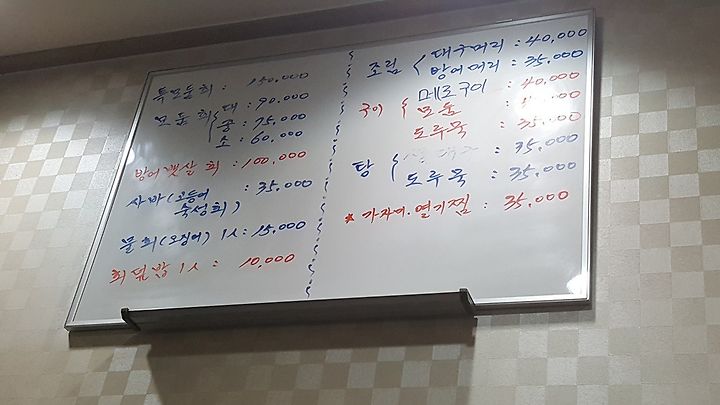 특모둠회 : 150,000
모둠회 { 대 : 90,000
중 : 75,000
소 : 60,000
방어 뱃살 회 : 100,000
사바 (고등어 : 35,000
숙성회)
물회 (오징어) 1人 : 15,000
회덮밥 1人 : 10,000
조림 { 대구머리 : 40,000
방어머리 : 35,000
구이 { 메로구이 : 40,000
모둠 :
도루묵 : 35,000
탕 { : 35,000
도루묵 : 35,000
* 가자미. 열기찜 : 35,000